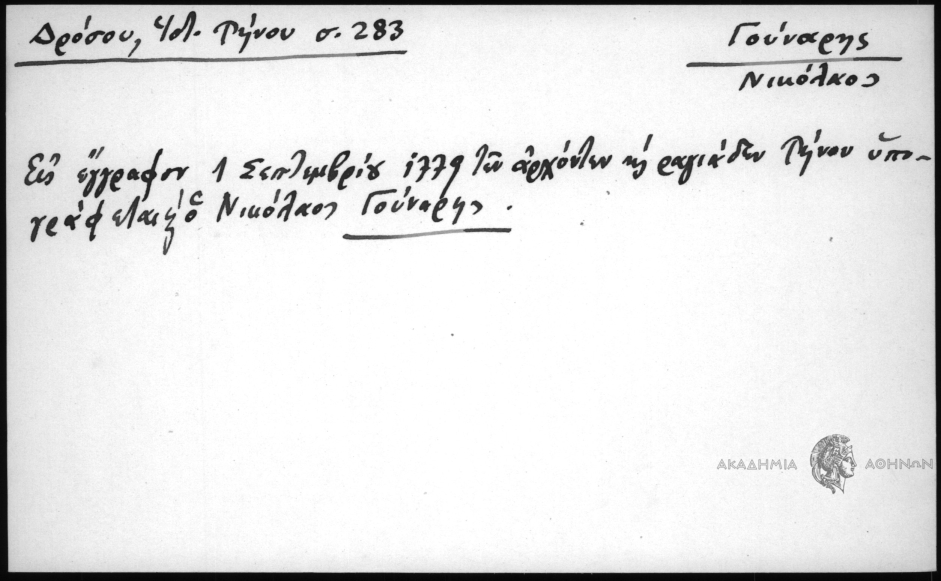 Δρόσου, Ἱστ. Τήνου σ. 283
Γούναρης
Νικόλαος
Εἰς ἔγγραφον 1 Σεπτεμβρίου 1779 τῶν ἀρχόντων κ̀ ραγιάδων Τήνου ὑπο-
γράφεται κ̀ ὁ Νικόλαος Γούναρης.
ΑΚΑΔΗΜΙΑ ΑΘΗΝΩΝ